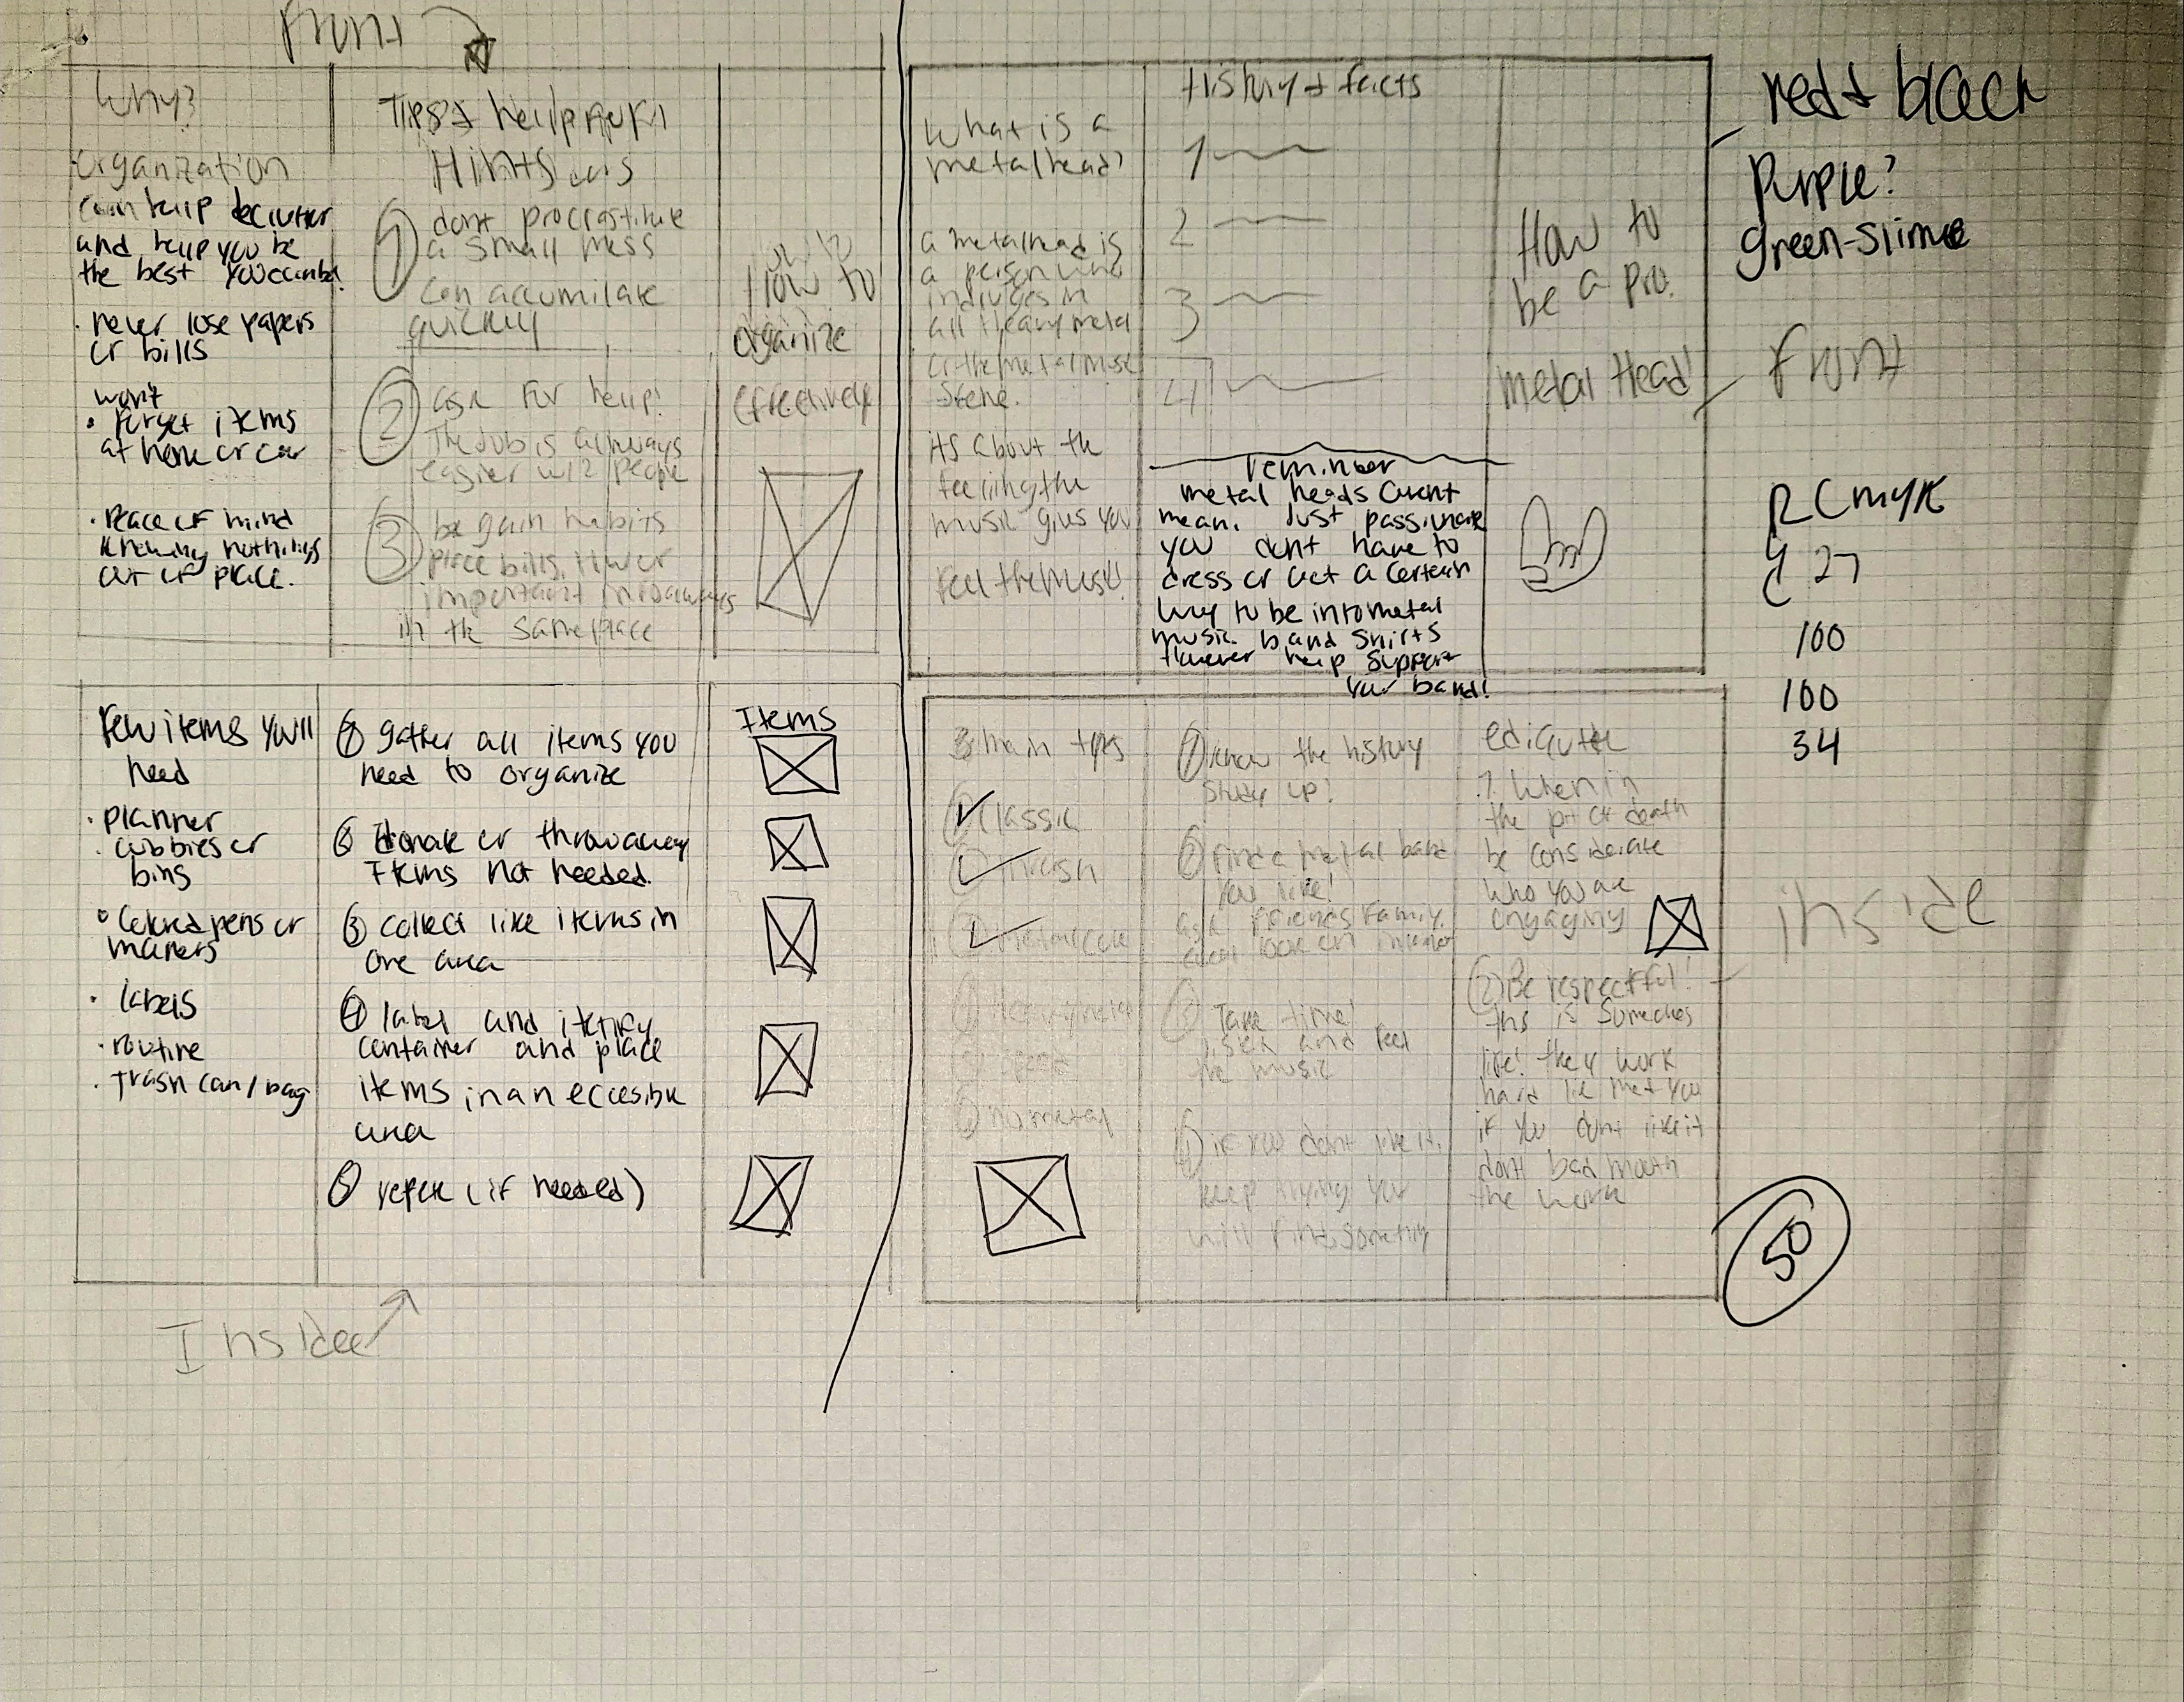 front
Why?
Organization
can help declutter
and help you be
the best you can be.
• never lose papers
or bills
won't
• forget items
at home or car
• Peace of mind
knowing nothings
out of place.
Tips +
Hints
1 dont
a small mess
can accumilate
quickly
2 ask for help!
The Job is always
easier w/2 people
3 be gain habits
place bills,
important
in the same place
How to
organize
effectively
few items you'll
need
• planner
• cubbies or
bins
• Colored pens or
markers
• labels
• routine
• Trash can/bag
1 gather all items you
need to organize
2 donate or throw away
Items not needed.
3 collect like items in
one area
4 label and
container and place
items in an
area
5 (if needed)
Items
Inside
What is a
metalhead?
a metalhead is
a person who
indulges in
all Heavy metal
or the metal music
scene.
its about the
feeling the
music gives you
feel the music!
History + facts
1
2
3
4
metal heads arent
mean. Just passionate
you dont have to
dress or act a certain
way to be into metal
music. band shirts
However help support
your band!
How to
be a pro.
metal Head!
3 main types
Classic
Thrash
Metalcore
nu metal
1 know the history
study up!
2 find a metal band
you like!
ask friends family.
look on
3 Take time!
listen and feel
the music
4 if you dont like it.
keep trying you
will find
1. When in
the pit of death
be considerate
who you are
engaging
2 Be respectful!
this is
life! they work
hard
if you dont like it
dont bad mouth
the work
red + black
Purple?
green-slime
front
CMYK
27
100
100
34
inside
50